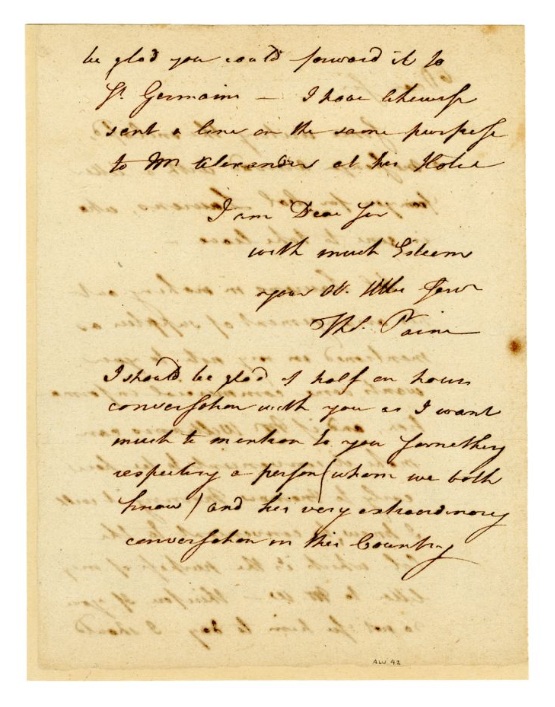 be glad you could forward it to
St Germains — I have likewise
sent a line on the same purpose
to Mr Alexander at his Hotel
I am Dear Sir
with much Esteem
your Ob. Hble Serv
Ths. Paine
I should be glad of half an hours
conversation with you as I want
much to mention to you something
respecting a person (whom we both
know) and his very extraordinary
conversation in this Country
ALU 42